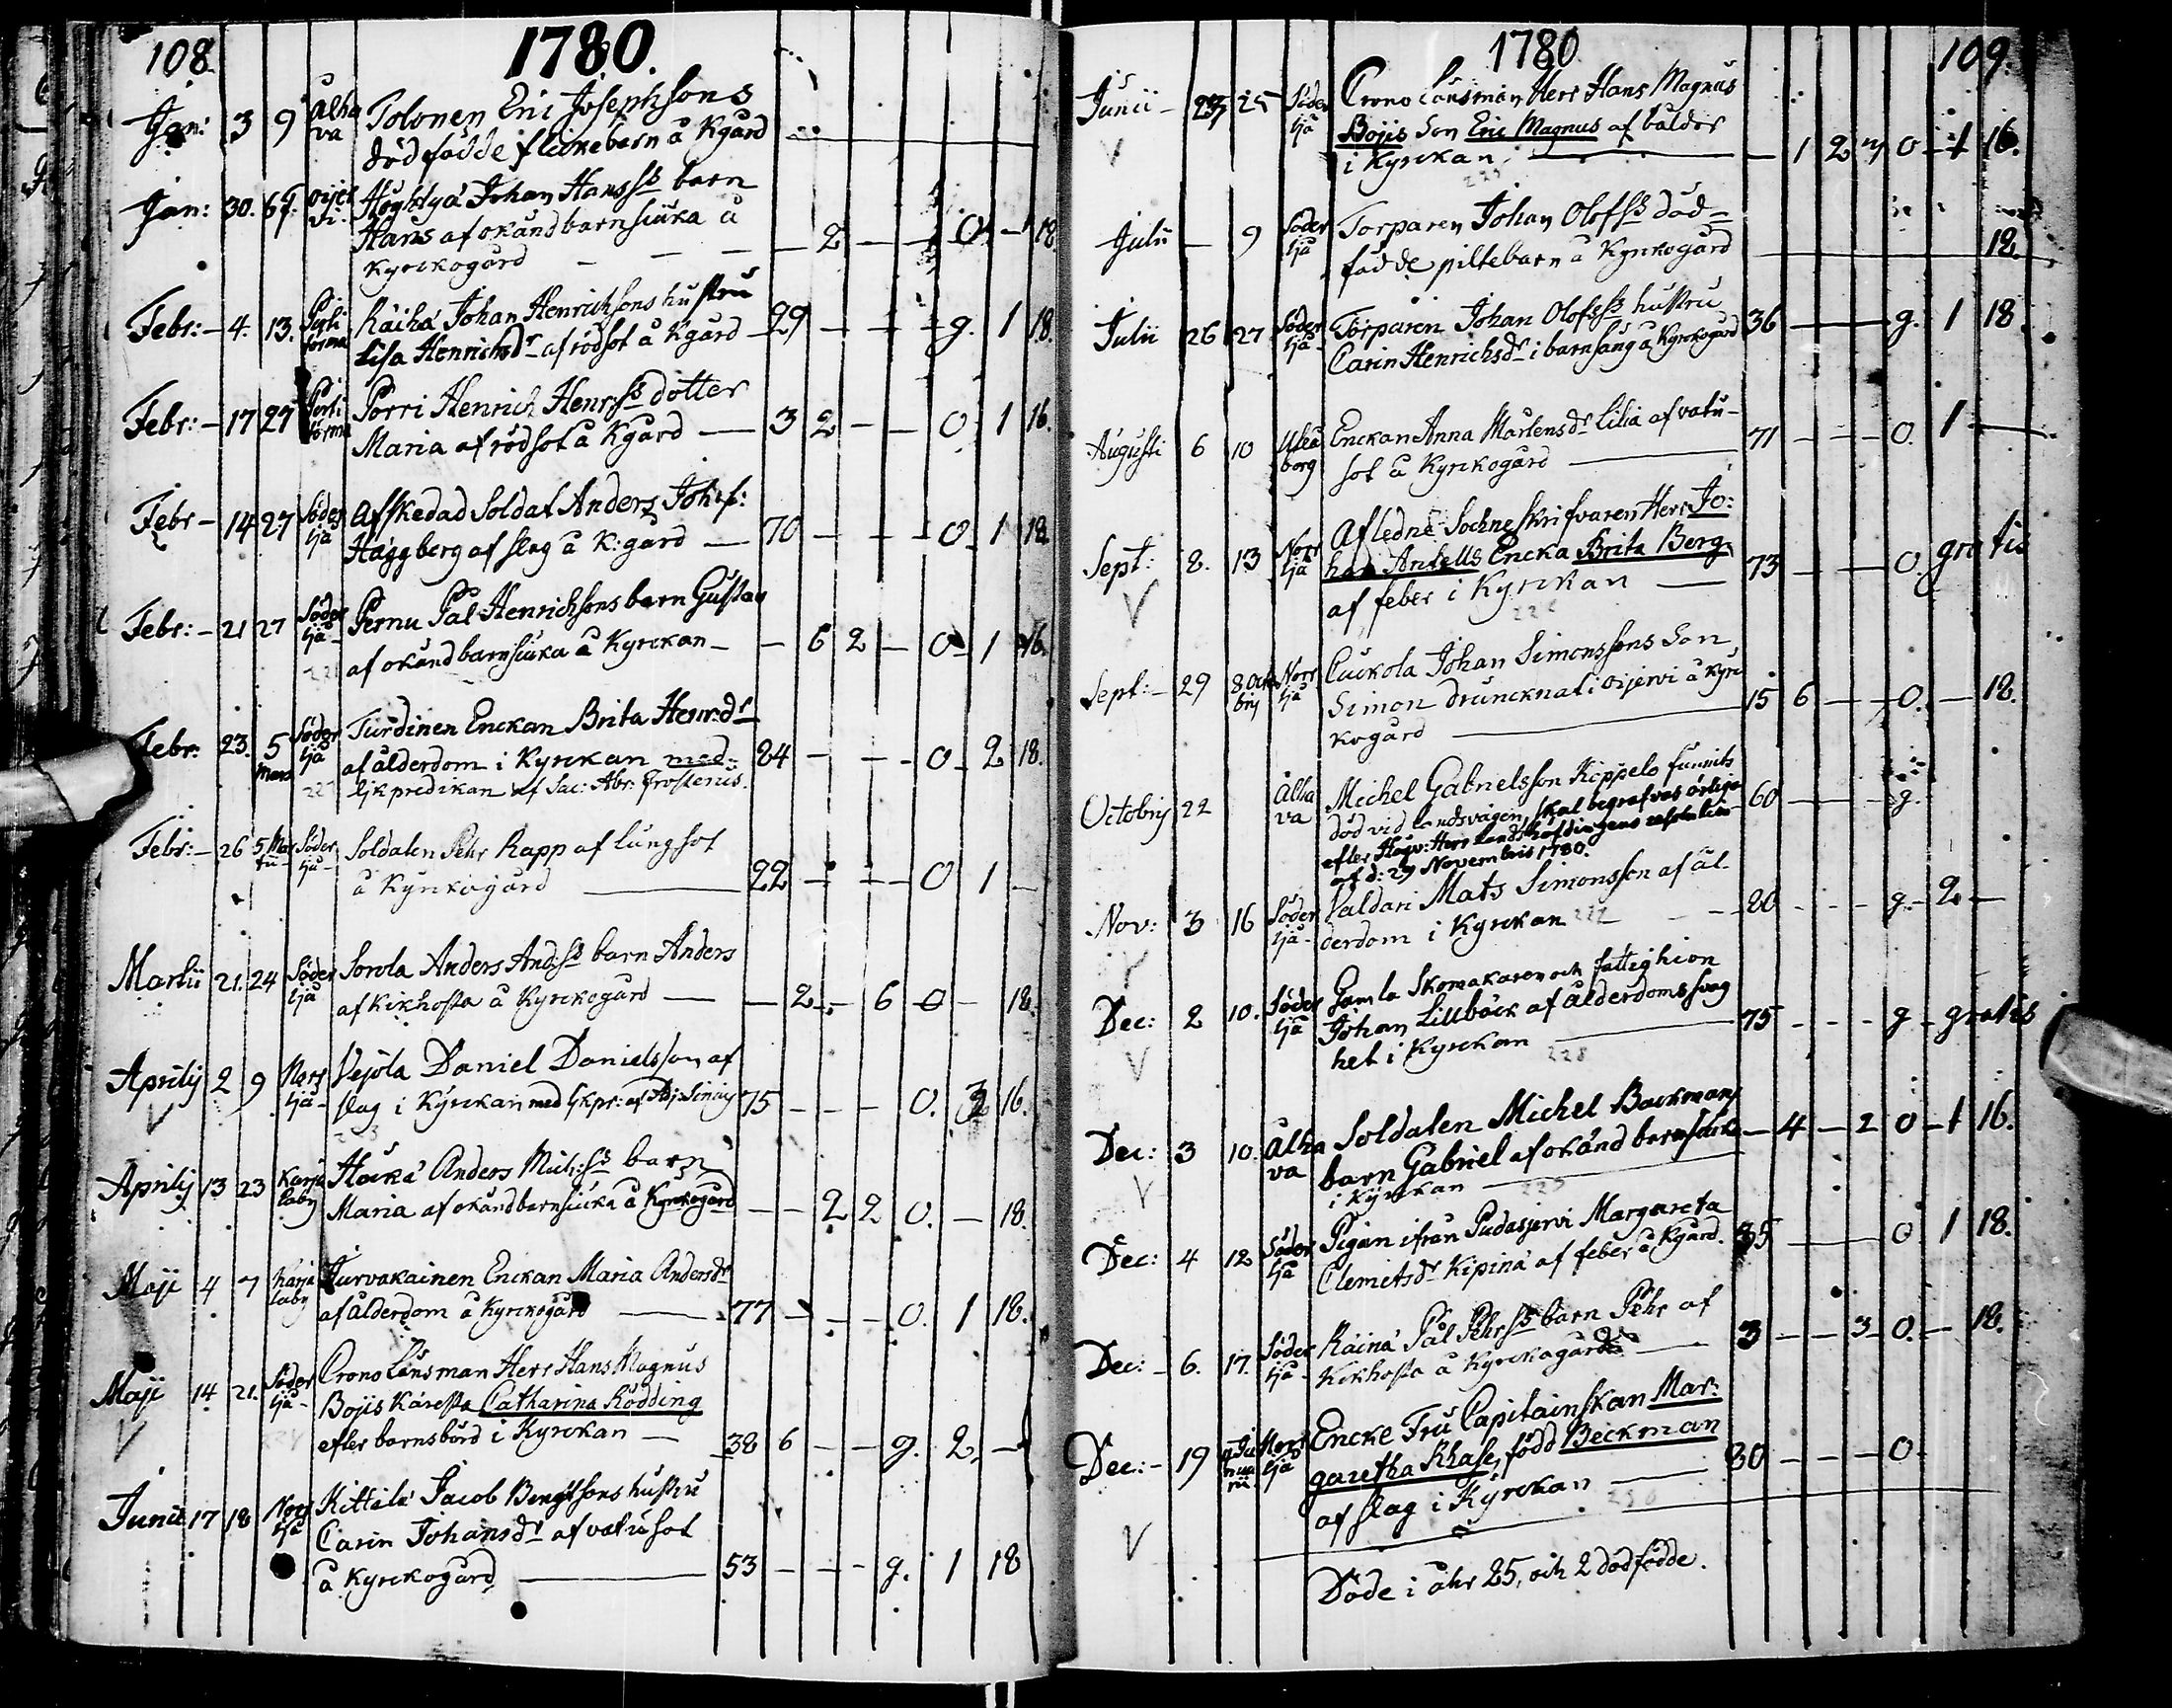 108. 1780.
Jan: 3 9 Alha va Tolonen Eric Josephsons
dödfödde flickebarn å Kgård
Jan: 30. Oijer vi. Johan Hanssß barn
Hans af okänd barnsiuka å — 2 — — 0. — 18.
Kyrckogård — — —
Febr: — 4. 13. Räihä Johan Henrichsons hustru
Lisa Henrichsdr af rödsot å Kgård — 29 — — — g. 1 18.
Febr: — 17 27 Porri Henrich Henrsß dotter
Maria af rödsot å Kgård — 3 2 — — 0. 1 16.
Febr — 14 27 Söder ljä Afskedad Soldat Anders Joh:s:
Häggberg af slag å K:gård — 70 — — — 0. 1 18.
Febr: — 21 27 Söder ljä Pernu Pål Henrichsons barn Gustav
af okänd barnsiuka å Kyrckan — — 6 2 — 0 — 1 16.
Febr: 23. 5 Mars Söder ljä Turdinen Enckan Brita Henr:dr
af ålderdom i Kyrckan med 84 — — — 0 — 2 18.
ljkpredikan af Sac: Abr: Frosterus.
Febr: — 26 5 Mar tii Söder ljä Soldaten Pehr Rapp af lungsot
å Kyrkogård — 22 — — — 0 1 —
Martii 21. 24 Söder ljä Sorola Anders Andsß barn Anders
af Kikhosta å Kyrckogård — — 2 — 6 0 — 18.
Aprilij 2 9 Norr ljä Vejola Daniel Danielsson af
slag i Kyrckan med ljkpr: af 75 — — — 0. 16.
Aprilij 13 23 Karja laby Anders Mich:sß barn
Maria af okänd barnsiuka å Kyrckogård — — 2 2 0. — 18.
Maji 4 7 Karja laby Turvakainen Enckan Maria Andersdr
af ålderdom å Kyrckogård — 77 — — — 0. 1 18.
Maji 14 21. Söder ljä Crono Länsman Herr Hans Magnus
Bojis Käresta Catharina Rödding
efter barnsbörd i Kyrckan — 38 6 — — g. 2. —
Junii 17 18 Norr ljä Kittilä Jacob Bengtsons hustru
Carin Johansdr af vatusot
å Kyrckogård — 53 — — — g. 1 18
1780 109.
Junii — 25 Söder ljä Crono Länsman Herr Hans Magnus
Bojis Son Eric Magnus af bäldor
i Kyrckan — — 1 2 7 0 — 1 16.
Julii — 9 Söder ljä Torparen Johan Olofsß död-
födde piltebarn å Kyrckogård 18.
Julii 26 27 Söder ljä Torparen Johan Olofsß hustru
Carin Henrichsdr i barnsäng å Kyrckogård 36 — g. 1 18.
Augusti 6 10 Uleå borg Enckan Anna Mårtensdr Lilia af vatu-
sot å Kyrckogård — 71 — — — 0. 1 —
Sept: 8. 13 Norr ljä Afledne Sochneskrifvaren Herr Jo:
han Antells Encka Brita Berg
af feber i Kyrckan — 73 — — 0. gratis
Sept: — 29 8 Octo brij Norr ljä Cuckola Johan Simonssons Son
Simon drunknat i Oijervi å Kyr 15 6 — — 0. — 18.
kogård —
Octobrij 22 Alha va Michel Gabrielsson Koppelo funnits
död vid landsvägen, skal begrafvas ärliga 60 — — — g.
efter Högv: Herr Landshöfdingens resolution
af d: 27 Novembris 1780.
Nov: 3 16 Söder ljä Valdari Mats Simonsson af ål-
derdom i Kyrckan — — 80 — — — g. 2 —
Dec: 2 10. Söder ljä Gamla Skomakaren och fattighion
Johan Lillbäck af ålderdomssvag
het i Kyrckan 75 — — — g — gratis
Dec: 3 10. Alha va Soldaten Michel Backmans
barn Gabriel af okänd barnsiuka — 4 — 2 0 — 1 16.
i Kyrckan —
Dec: 4 12 Söder ljä Pigan ifrån Pudasjervi Margareta
Clemetsdr Kipinä af feber å Kgård. 35 — 0. 1 18.
Dec: — 6. 17. Söder ljä Räinä Pål Pehrsß barn Pehr af
Kikhosta å Kyrckogård — 3 — — 3 0. — 18.
Dec: — 19 Norr ljä Encke Fru Capitainskan Mar-
garetha Rhase, född Beckman 80 — — — 0.
af slag i Kyrckan —
Döde i åhr 25, och 2 dödfödde.